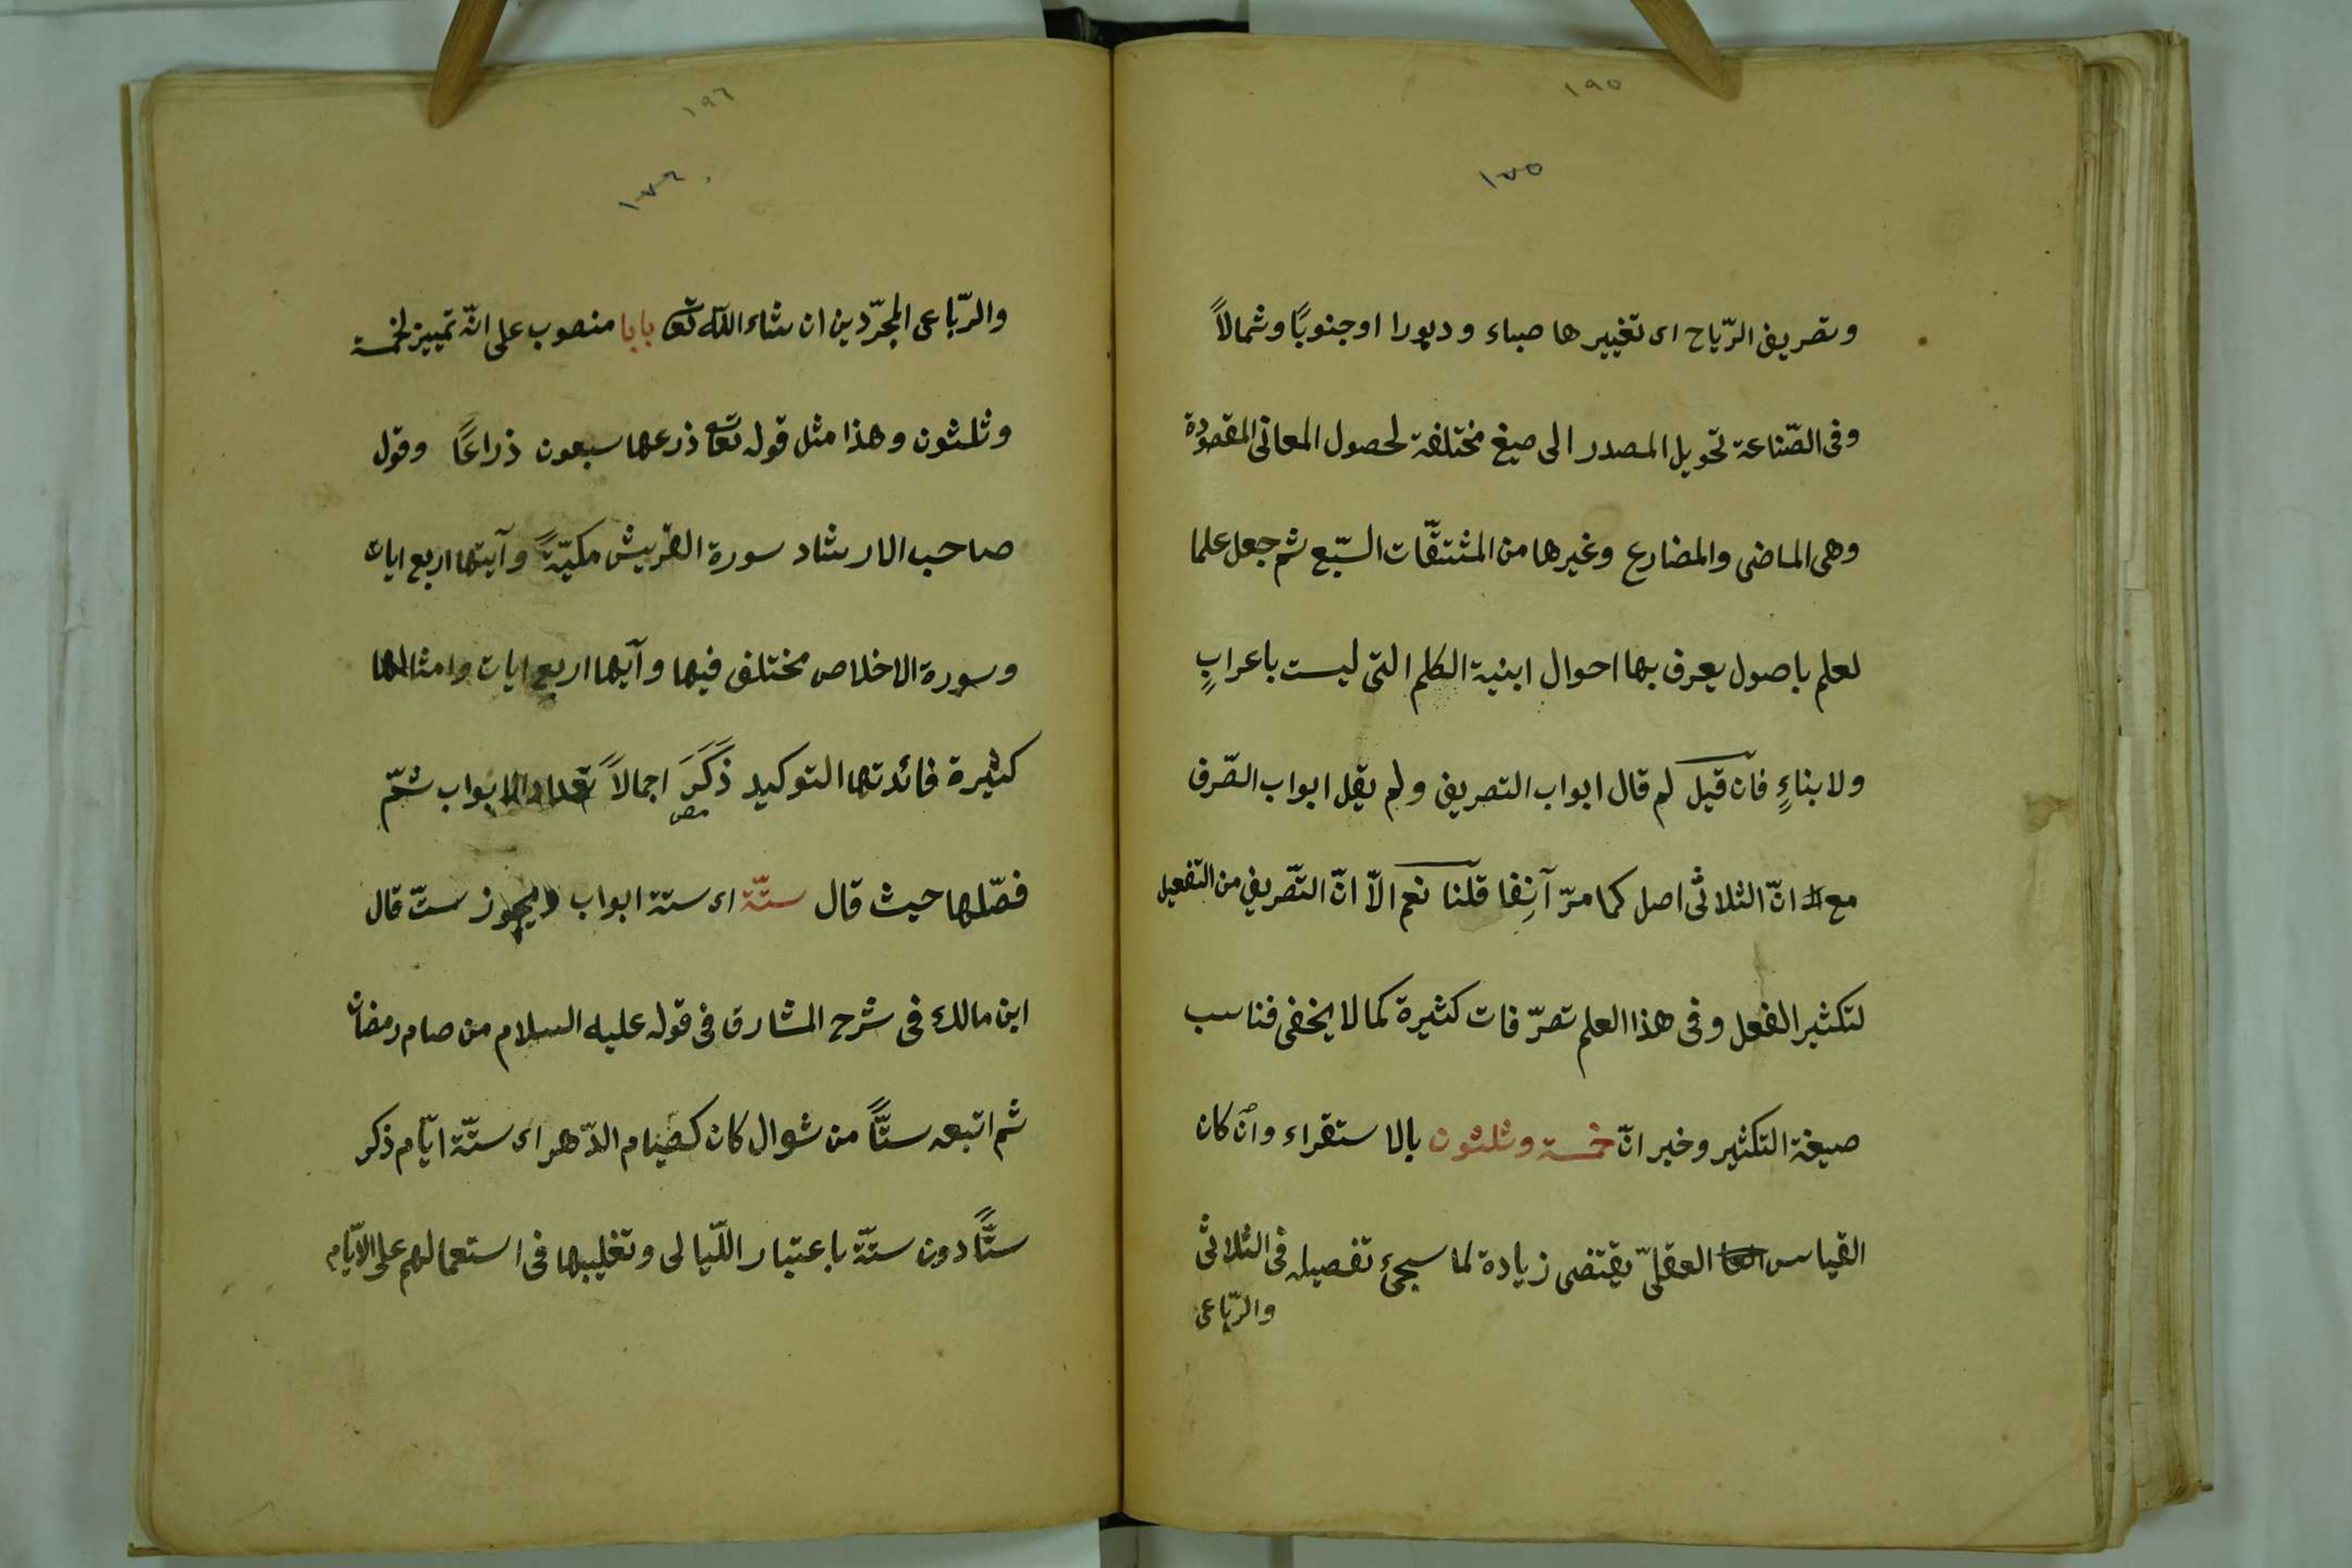 ١٩٥
١٧٥
وتصريف الرّياح اى تغييرها صباء ودبورا اوجنوبًا وشمالاً
وفى الصّناعة تحويل المصدر الى صيغ مختلفة لحصول المعانى المقصودة
وهى الماضى والمضارع وغيرها من المشتقّات السّبع ثم جعل علما
لعلم باصول يعرف بها احوال ابنية الكلم التى ليست باعرابٍ
ولا بناءٍ فان قيل لم قال ابواب التصريف ولم يقل ابواب الصّرف
مع انّ الثلاثى اصل كما مرّ آنِفا قلنا نعم الاّ انّ التّصريف من التفعيل
لتكثير الفعل وفى هذا العلم تصرّفات كثيرة كما لا يخفى فناسب
صيغة التكثير وخبر انّ خمسة وثلثون بالاستقراء وان كان
القياس العقلىّ يقتضى زيادة لما سيجئ تفصيله فى الثلاثى
والرّباعى
١٩٦
١٧٦
والرّباعى المجرّدين ان شاء الله تع بابا منصوب على انّه تمييز لخمسة
وثلثون وهذا مثل قوله تع ذرعها سبعون ذراعًا وقول
صاحب الارشاد سورة القريش مكيّةً وآيتها اربع ايات
وسورة الاخلاص مختلف فيها وآيها اربع ايات وامثالها
كثيرة فائدتها التوكيد ذَكَرَ اجمالاً تعداد الابواب ثمّ
مص
فصّلها حيث قال ستّة اى ستة ابواب ويجوز ستّ قال
ابن مالك فى شرح المشارق فى قوله عليه السلام من صام رمضان
ثم اتبعه ستًّا من شوال كان كصيام الدّهر اى ستّة ايّام ذكر
ستًّا دون ستّة باعتبار اللّيالى وتغليبها فى استعمالهم على الايّام